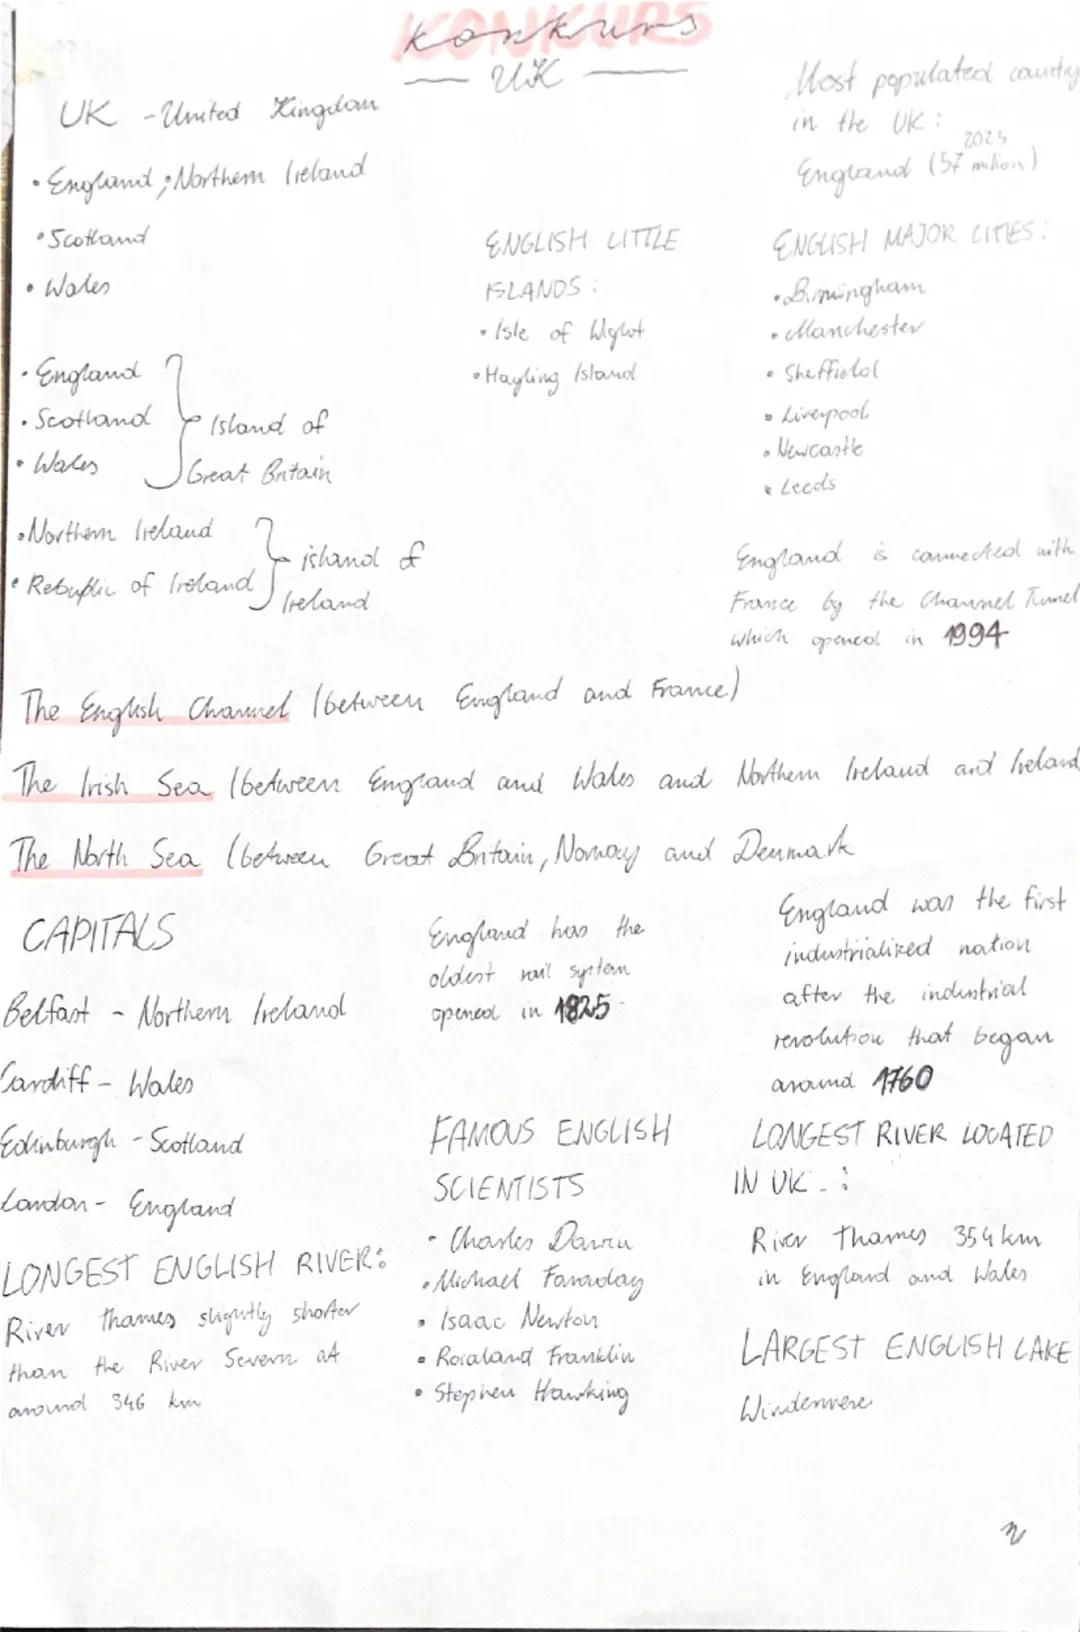 KONKURS
konkurs
UK
UK - United Kingdom
• England; • Northern Ireland
• Scotland
• Wales
• England
• Scotland
• Wales
Island of
Great Britain
• Northern Ireland
• Rebuplic of Ireland
island of
Ireland
ENGLISH LITTLE
ISLANDS:
• Isle of Wight
• Hayling Island
Most populated country
in the UK:
2023
England (57 milion)
ENGLISH MAJOR CITIES:
• Birmingham
• Manchester
• Sheffield
• Liverpool
• Newcastle
• Leeds
England is connected with
France by the Channel Tunnel
which opened in 1994
The English Channel (between England and France)
The Irish Sea (between England and Wales and Northern Ireland and Ireland
The North Sea (between Great Britain, Norway and Denmark
CAPITALS
Belfast - Northern Ireland
Cardiff - Wales
Edinburgh - Scotland
London - England
LONGEST ENGLISH RIVER:
River thames slightly shorter
than the River Severn at
around 346 km
England has the
oldest rail system
opened in 1825
FAMOUS ENGLISH
SCIENTISTS
• Charles Darwin
• Michael Faraday
• Isaac Newton
• Rosaland Franklin
• Stephen Hawking
England was the first
industrialized nation
after the industrial
revolution that began
around 1760
LONGEST RIVER LOCATED
IN UK - :
River thames 354 km
in England and Wales
LARGEST ENGLISH LAKE
Windermere